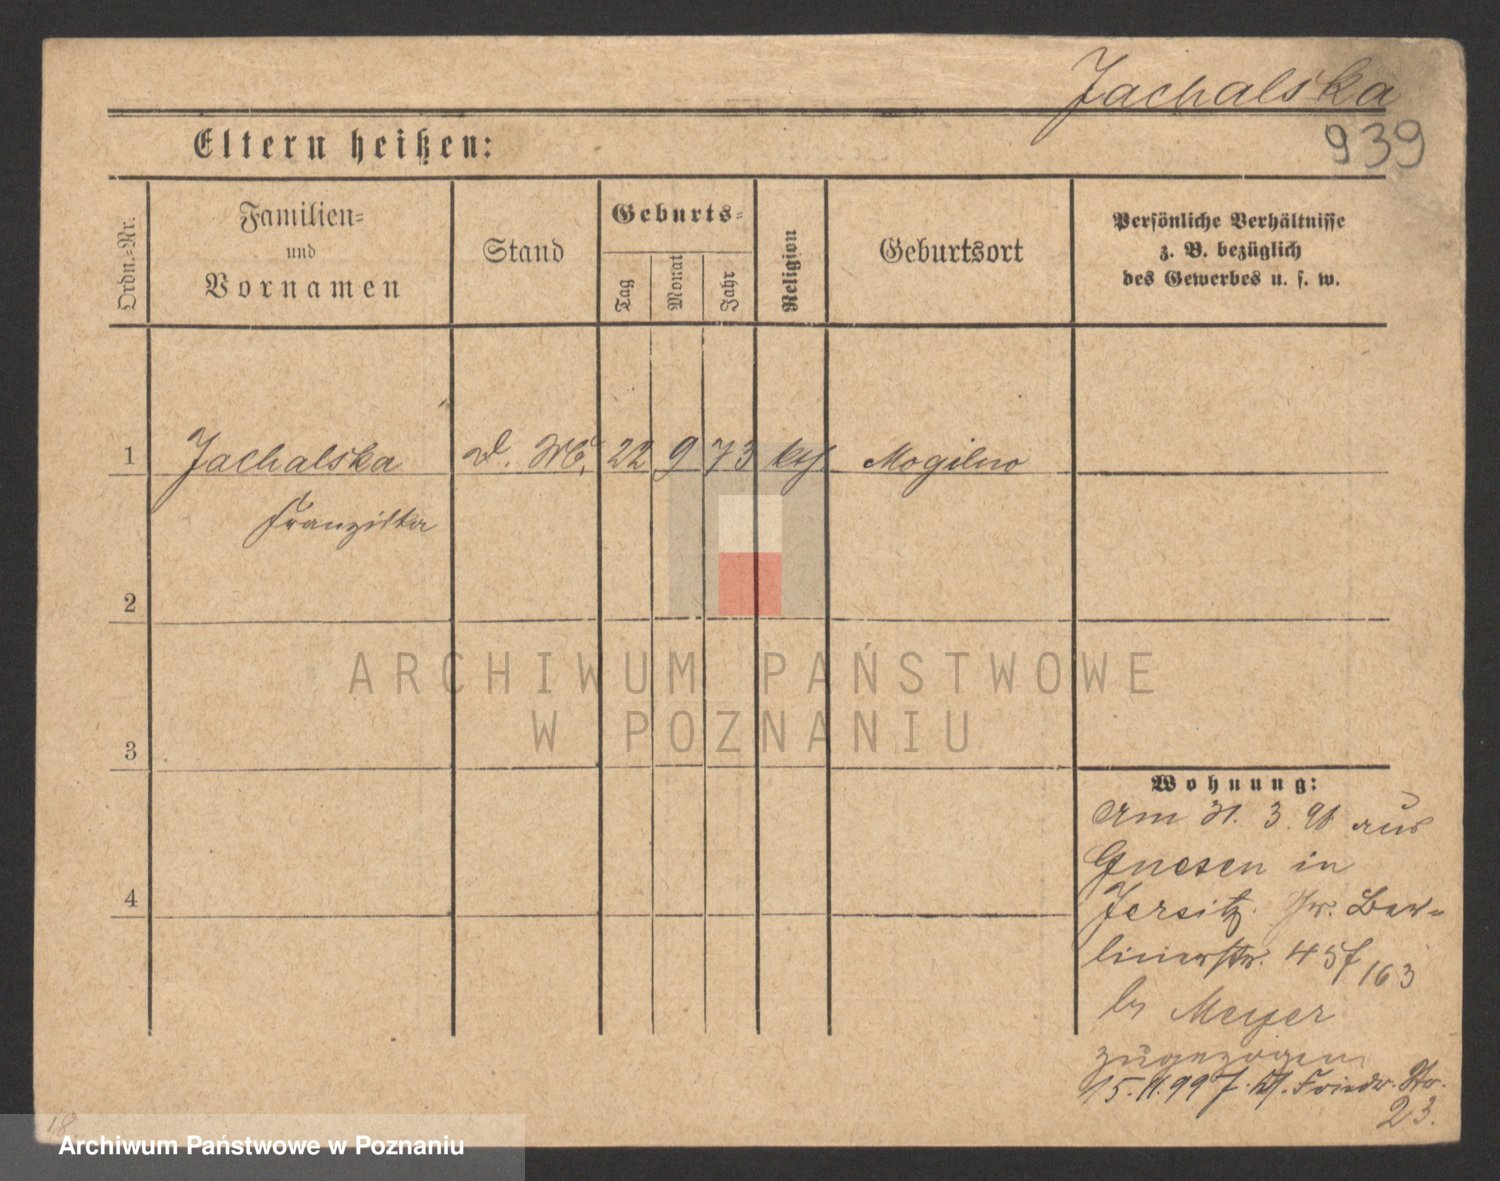 Jachalska
939
Eltern heißen:
Ordn.=Nr.
Familien=
und
Vornamen
Stand
Geburts=
Tag
Monat
Jahr
Religion
Geburtsort
Persönliche Verhältnisse
z. B. bezüglich
des Gewerbes u. s. w.
1 Jachalska D. 22 9 73 kth Mogilno
Franziska
2
3
4
ARCHIWUM PAŃSTWOWE
W POZNANIU
Wohnung:
Am 31. 3. 98 aus
Gnesen in
Jersitz. Gr. Ber-
linerstr. 45f 163
by Meyer
zugezogen
15. 99 J. Friedr. Str.
23.
18
Archiwum Państwowe w Poznaniu